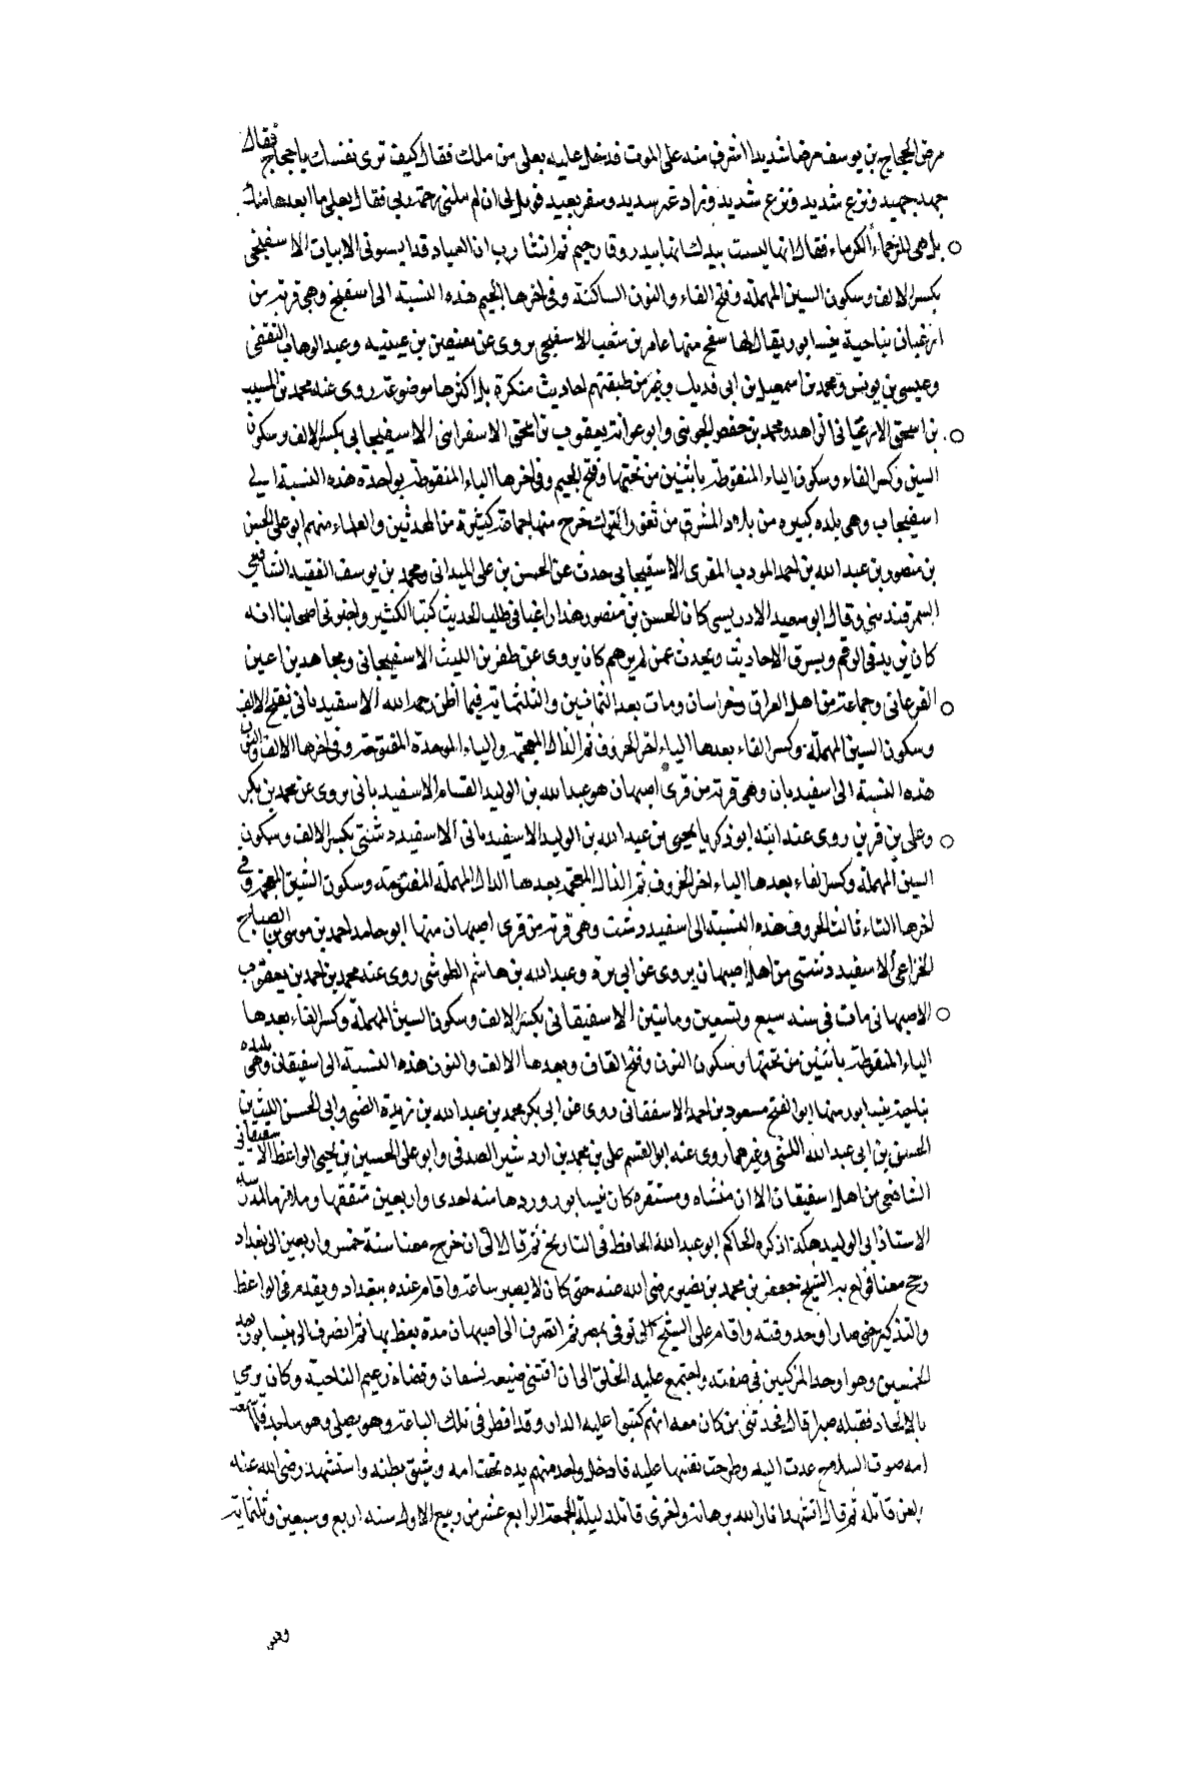 مرض الحجاج بن يوسف مرضا شديدا اشرف منه على الموت فدخل عليه يعلى بن ملك فقال كيف ترى نفسك يا حجاج فقال
جهد جهيد ونزع شديد ونزع شديد وزاد غير سديد وسفر بعيد فويل لى ان لم ينلنى رحمة ربى فقال يعلى ما ابعدها منك
بل هى للرحماء الكرماء فقال انها ليست بيدك انها بيد روف رحيم ثم انشا رب ان العباد قد ايسونى الابيات الاسفنجى
بكسر الالف وسكون السين المهملة وفتح الفاء والنون الساكنة وفى اخرها الجيم هذه النسبة الى اسفنج وهى قرية من
ارغيان بناحية نيسابور يقال لها سفج منها عامر بن شعيب الاسفنجى يروى عن سفين بن عيينه وعبد الوهاب الثقفى
وعيسى بن يونس ومحمد بن اسمعيل بن ابى فديك وغيرهم من طبقتهم احاديث منكرة بل اكثرها موضوعة روى عنه محمد بن المسيب
بن اسحق الارغيانى الزاهد ومحمد بن حفص الجوينى وابو عوانة يعقوب بن اسحق الاسفراينى الاسفيجابى بكسر الالف وسكون
السين وكسر الفاء وسكون الياء المنقوطة باثنين من تحتها وفتح الجيم وفى اخرها الباء المنقوطة بواحدة هذه النسبة الى
اسفيجاب وهى بلده كبيره من بلاد المشرق من ثغور الترك خرج منها جماعة كثيرة من المحدثين والعلماء منهم ابو على الحسن
بن منصور بن عبد الله بن احمد المودب المقرى الاسفيجابى حدث عن الحسن بن على الميدانى ومحمد بن يوسف الفقيه الشافعى
السمرقندى وقال ابو سعيد الادريسى كان الحسن بن منصور هذا راغبا فى طلب الحديث كتب الكثير واخبرنى اصحابنا انه
كان يزيد فى الرقم ويسرق الاحاديث ويحدث عمن لم يرهم كان يروى عن ظفر بن الليث الاسفيجابى ومجاهد بن اعين
الفرغانى وجماعة من اهل العراق وخراسان ومات بعد الثمانين والثلثماية فيما اظن رحمه الله الاسفيذبانى بفتح الالف
وسكون السين المهملة وكسر الفاء بعدها الياء اخر الحروف ثم الذال المعجمة والباء الموحدة المفتوحة وفى اخرها الالف والنون
هذه النسبة الى اسفيذبان وهى قرية من قرى اصبهان هو عبد الله بن الوليد الاسفيذبانى يروى عن محمد بن بكر
وعلى بن قرين روى عنه ابنه ابو زكريا يحيى بن عبد الله بن الوليد الاسفيذبانى الاسفيذدشتى بكسر الالف وسكون
السين المهملة وكسر الفاء بعدها الياء اخر الحروف ثم الذال المعجمة بعدها الدال المهملة المفتوحة وسكون الشين المعجمة وفى
اخرها التاء ثالث الحروف هذه النسبة الى اسفيذدشت وهى قرية من قرى اصبهان منها ابو حامد احمد بن موسى بن الصباح
الخزاعى الاسفيذدشتى من اهل اصبهان يروى عن ابى برة وعبد الله بن هاشم الطوسى روى عنه محمد بن احمد بن يعقوب
الاصبهانى مات فى سنه سبع وتسعين ومائتين الاسفيقانى بكسر الالف وسكون السين المهملة وكسر الفاء بعدها
الياء المنقوطة باثنين من تحتها وسكون النون وفتح القاف وبعدها الالف والنون هذه النسبة الى اسفيقان وهى بليده
بناحية نيسابور منها ابو الفتح مسعود بن احمد الاسفيقانى روى عن ابى بكر محمد بن عبد الله بن زيدة الضبى وابى الحسن الليث بن
الحسن بن ابى عبد الله الليثى وغيرهما روى عنه ابو القسم على بن محمد بن اردشير الصدفى وابو على الحسين بن يحيى الواعظ الاسفيقانى
الشافعى من اهل اسفيقان الا ان منشاه ومستقره كان نيسابور وردها سنه احدى واربعين متفقها وملازما لمدرسة
الاستاذ ابى الوليد هكذا ذكره الحاكم ابو عبد الله الحافظ فى التاريخ ثم قال الى ان خرج معنا سنة خمس واربعين الى بغداد
وحج معنا الشيخ جعفر بن محمد بن نصير رضى الله عنه حتى كان لا يصبر ساعة واقام عنده ببغداد ويقدم فى الواعظ
والتذكير حتى صار اوحد وقته واقام على الشيخ الى توفى بمصر ثم انصرف الى اصبهان مدة يعظ بها ثم انصرف الى نيسابور بعد
الخمسين وهو اوحد المذكرين فى صفته واجتمع عليه الخلق الى ان اقتنى ضيعه بنسفان وقضاه زعيم الناحية وكان يرمى
بالالحاد فقتله صبرا قال فحدثنى من كان معه انهم كبسوا عليه الدار وقد افطر فى تلك الساعة وهو يصلى وهو ساجد فلما سمعت
امه صوت السلاح عدت اليه وطرحت نفسها عليه فادخل واحد منهم يده تحت امه وشق بطنه واستشهد رضى الله عنه
ولعن قاتله ثم قال استشهد انار الله برهانه واخزى قاتله ليلة الجمعة الرابع عشر من ربيع الاول سنه اربع وسبعين وثلثماية